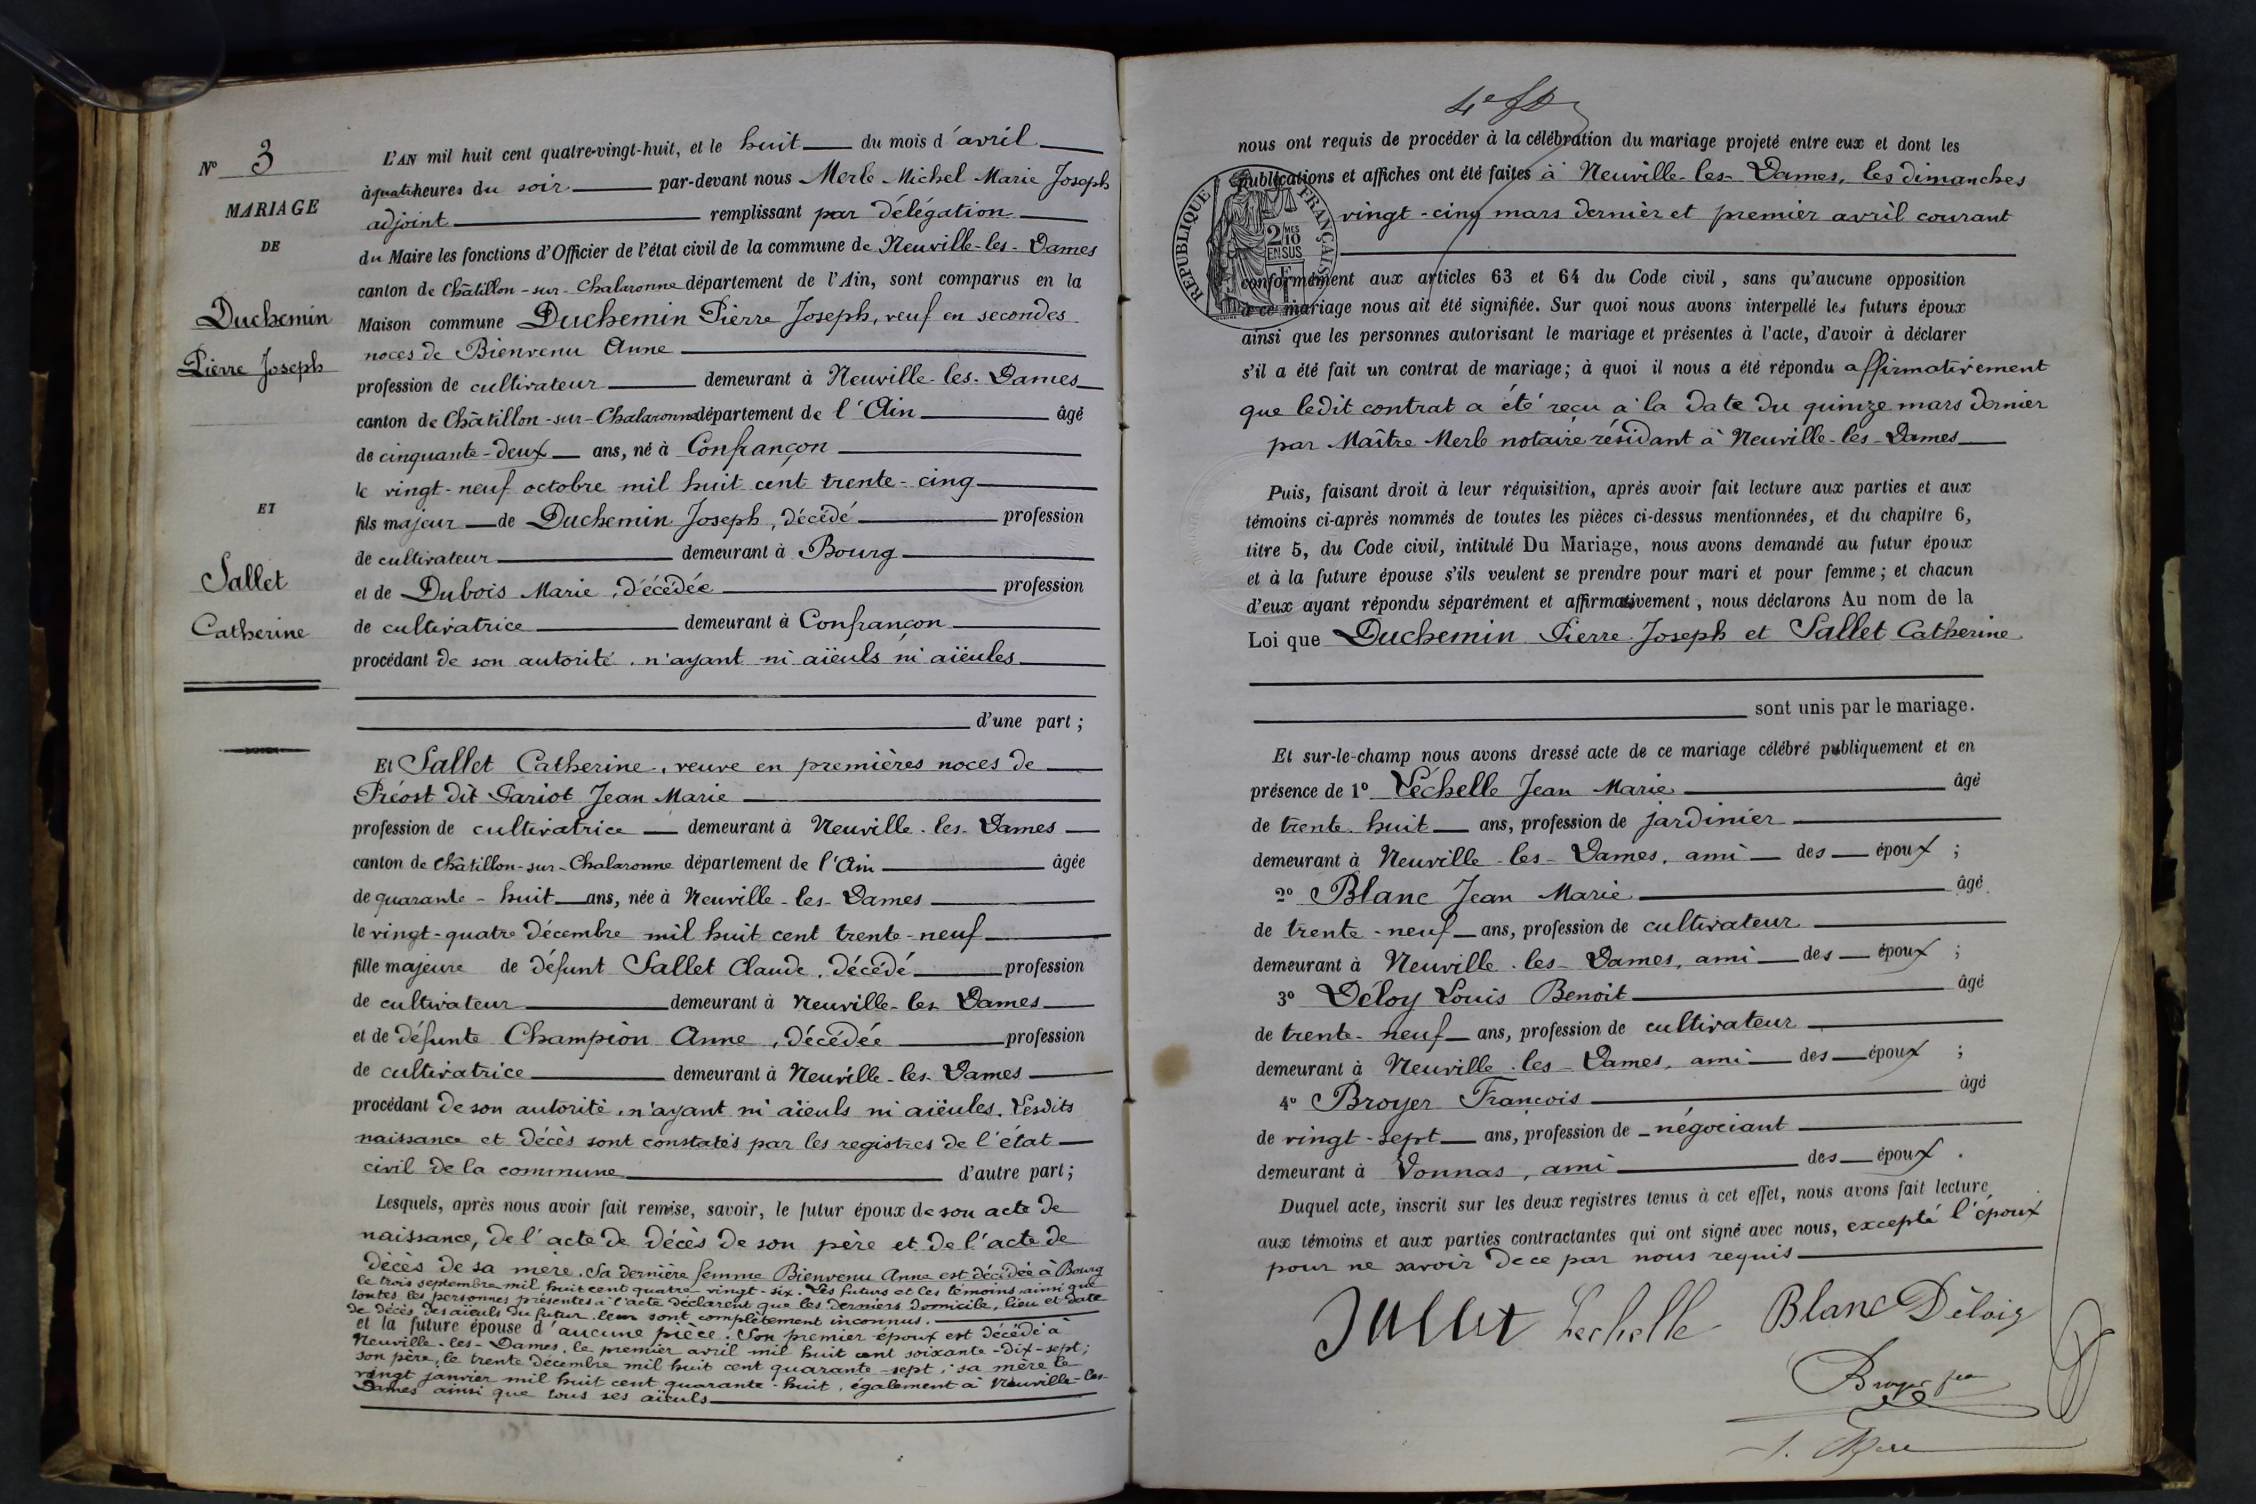 N° 3
MARIAGE
DE
Duchemin
Pierre Joseph
ET
Sallet
Catherine
L'AN mil huit cent quatre-vingt-huit, et le huit du mois d'avril
à quatre heures du soir par-devant nous Merle Michel Marie Joseph
adjoint remplissant par délégation
du Maire les fonctions d'Officier de l'état civil de la commune de Neuville-les-Dames
canton de Châtillon-sur-Chalaronne département de l'Ain, sont comparus en la
Maison commune Duchemin Pierre Joseph, veuf en secondes
noces de Bienvenu Anne
profession de cultivateur demeurant à Neuville-les-Dames
canton de Châtillon-sur-Chalaronne département de l'Ain âgé
de cinquante-deux ans, né à Confrançon
le vingt-neuf octobre mil huit cent trente-cinq
fils majeur de Duchemin Joseph, décédé profession
de cultivateur demeurant à Bourg
et de Dubois Marie, décédée profession
de cultivatrice demeurant à Confrançon
procédant de son autorité, n'ayant ni aïeuls ni aïeules
d'une part ;
Et Sallet Catherine, veuve en premières noces de
Préost dit Pariot Jean Marie
profession de cultivatrice demeurant à Neuville-les-Dames
canton de Châtillon-sur-Chalaronne département de l'Ain âgée
de quarante-huit ans, née à Neuville-les-Dames
le vingt-quatre décembre mil huit cent trente-neuf
fille majeure de défunt Sallet Claude, décédé profession
de cultivateur demeurant à Neuville-les-Dames
et de défunte Champion Anne, décédée profession
de cultivatrice demeurant à Neuville-les-Dames
procédant de son autorité, n'ayant ni aïeuls ni aïeules. Lesdits
naissance et décès sont constatés par les registres de l'état
civil de la commune d'autre part ;
Lesquels, après nous avoir fait remise, savoir, le futur époux de son acte de
naissance, de l'acte de décès de son père et de l'acte de
décès de sa mère. Sa dernière femme Bienvenu Anne est décédée à Bourg
le trois septembre mil huit cent quatre-vingt-six. Les futurs et les témoins ainsi que
toutes les personnes présentes à l'acte déclarent que les derniers domicile, lieu et date
de décès des aïeuls du futur leur sont complètement inconnus.
et la future épouse d'aucune pièce. Son premier époux est décédé à
Neuville-les-Dames, le premier avril mil huit cent soixante-dix-sept ;
son père, le trente décembre mil huit cent quarante-sept ; sa mère le
vingt janvier mil huit cent quarante-huit, également à Neuville-les-
Dames ainsi que tous ses aïeuls
4e
nous ont requis de procéder à la célébration du mariage projeté entre eux et dont les
publications et affiches ont été faites à Neuville-les-Dames, les dimanches
vingt-cinq mars dernier et premier avril courant
RÉPUBLIQUE FRANÇAISE
2/10
MES
EN SUS
conformément aux articles 63 et 64 du Code civil, sans qu'aucune opposition
à ce mariage nous ait été signifiée. Sur quoi nous avons interpellé les futurs époux
ainsi que les personnes autorisant le mariage et présentes à l'acte, d'avoir à déclarer
s'il a été fait un contrat de mariage ; à quoi il nous a été répondu affirmativement
que ledit contrat a été reçu à la date du quinze mars dernier
par Maître Merle notaire résidant à Neuville-les-Dames
Puis, faisant droit à leur réquisition, après avoir fait lecture aux parties et aux
témoins ci-après nommés de toutes les pièces ci-dessus mentionnées, et du chapitre 6,
titre 5, du Code civil, intitulé Du Mariage, nous avons demandé au futur époux
et à la future épouse s'ils veulent se prendre pour mari et pour femme ; et chacun
d'eux ayant répondu séparément et affirmativement, nous déclarons Au nom de la
Loi que Duchemin Pierre Joseph et Sallet Catherine
sont unis par le mariage.
Et sur-le-champ nous avons dressé acte de ce mariage célébré publiquement et en
présence de 1° Léchelle Jean Marie âgé
de trente-huit ans, profession de jardinier
demeurant à Neuville-les-Dames, ami des époux ;
2° Blanc Jean Marie âgé
de trente-neuf ans, profession de cultivateur
demeurant à Neuville-les-Dames, ami des époux ;
3° Déloy Louis Benoit âgé
de trente-neuf ans, profession de cultivateur
demeurant à Neuville-les-Dames, ami des époux ;
4° Broyer François âgé
de vingt-sept ans, profession de négociant
demeurant à Vonnas, ami des époux.
Duquel acte, inscrit sur les deux registres tenus à cet effet, nous avons fait lecture
aux témoins et aux parties contractantes qui ont signé avec nous, excepté l'époux
pour ne savoir de ce par nous requis
Sallet Lechelle Blanc Déloiy
Broyer